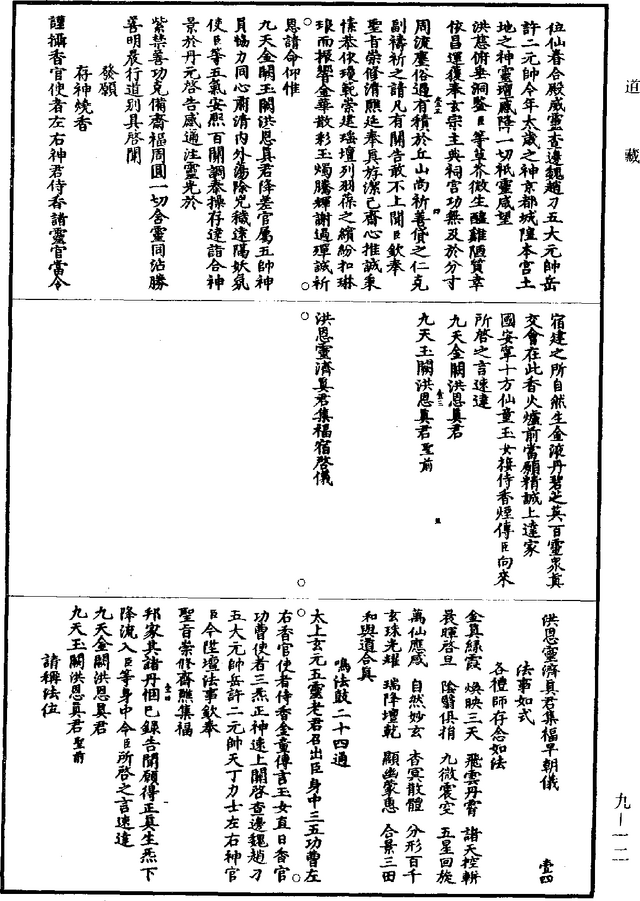 道藏
位仙眷合殿威靈查邊魏趙刁五大元帥岳
許二元帥今年太歲之神京都城隍本宮土
地之神靈壇感降一切祇靈咸望
洪慈俯垂洞鑒臣等草芥微生醯雞陋質幸
依昌運獲奉玄宗主典祠宮功無及於分寸
周流塵俗過有積於丘山尚祈善貸之仁克
副禱祈之請凡有關告敢不上聞臣欽奉
聖旨崇修清醮延奉真游潔己齋心推誠秉
愫恭依瓊範崇建瑤壇列羽葆之繽紛扣琳
琅而振響金華散彩玉燭騰輝謝過殫誠祈
恩請命仰惟
九天金闕玉闕洪恩真君降差官屬五帥神
員協力同心肅清內外蕩除氛穢遠隔妖氛
使臣等五氣安熙百關調泰操存達詣合神
景於丹元啓告感通注靈光於
紫禁善功克備齋福周圓一切含靈同沾勝
善明晨行道別具啓聞
發願
存神燒香
謹攝香官使者左右神君侍香諸靈官當令
宿建之所自然生金液丹碧芝英百靈衆真
交會在此香火爐前當願精誠上達家
國安寧十方仙童玉女接侍香煙傳臣向來
所啓之言速達
九天金闕洪恩真君
九天玉闕洪恩真君聖前
洪恩靈濟真君集福宿啓儀
洪恩靈濟真君集福早朝儀 壹四
法事如式
各禮師存念如法
金真緑霞 煥映三天 飛雲丹霄 諸天控軿
晨暉啓旦 陰翳俱捐 九微寰空 五星回旋
萬仙應感 自然妙玄 杳冥散體 分形百千
玄珠光耀 瑞降壇乾 顯幽蒙惠 合景三田
和與道合真
鳴法鼓二十四通
太上玄元五靈老君召出臣身中三五功曹左
右香官使者侍香金童傳言玉女直日香官
功曹使者三炁正神速上關啓查邊魏趙刁
五大元帥岳許二元帥天丁力士左右神官
臣今陞壇法事欽奉
聖旨崇修齋醮集福
邦家其諸丹悃已錄告聞願得正真生炁下
降流入臣等身中令臣所啓之言速達
九天金闕洪恩真君
九天玉闕洪恩真君聖前
請稱法位
九—一二